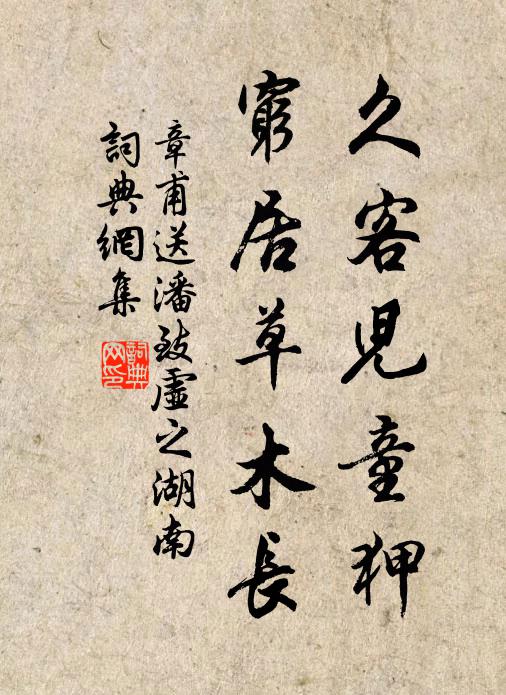 久客兒童狎
窮居草木長
章甫送潘致虛之湖南
詞典網集
詞典網印